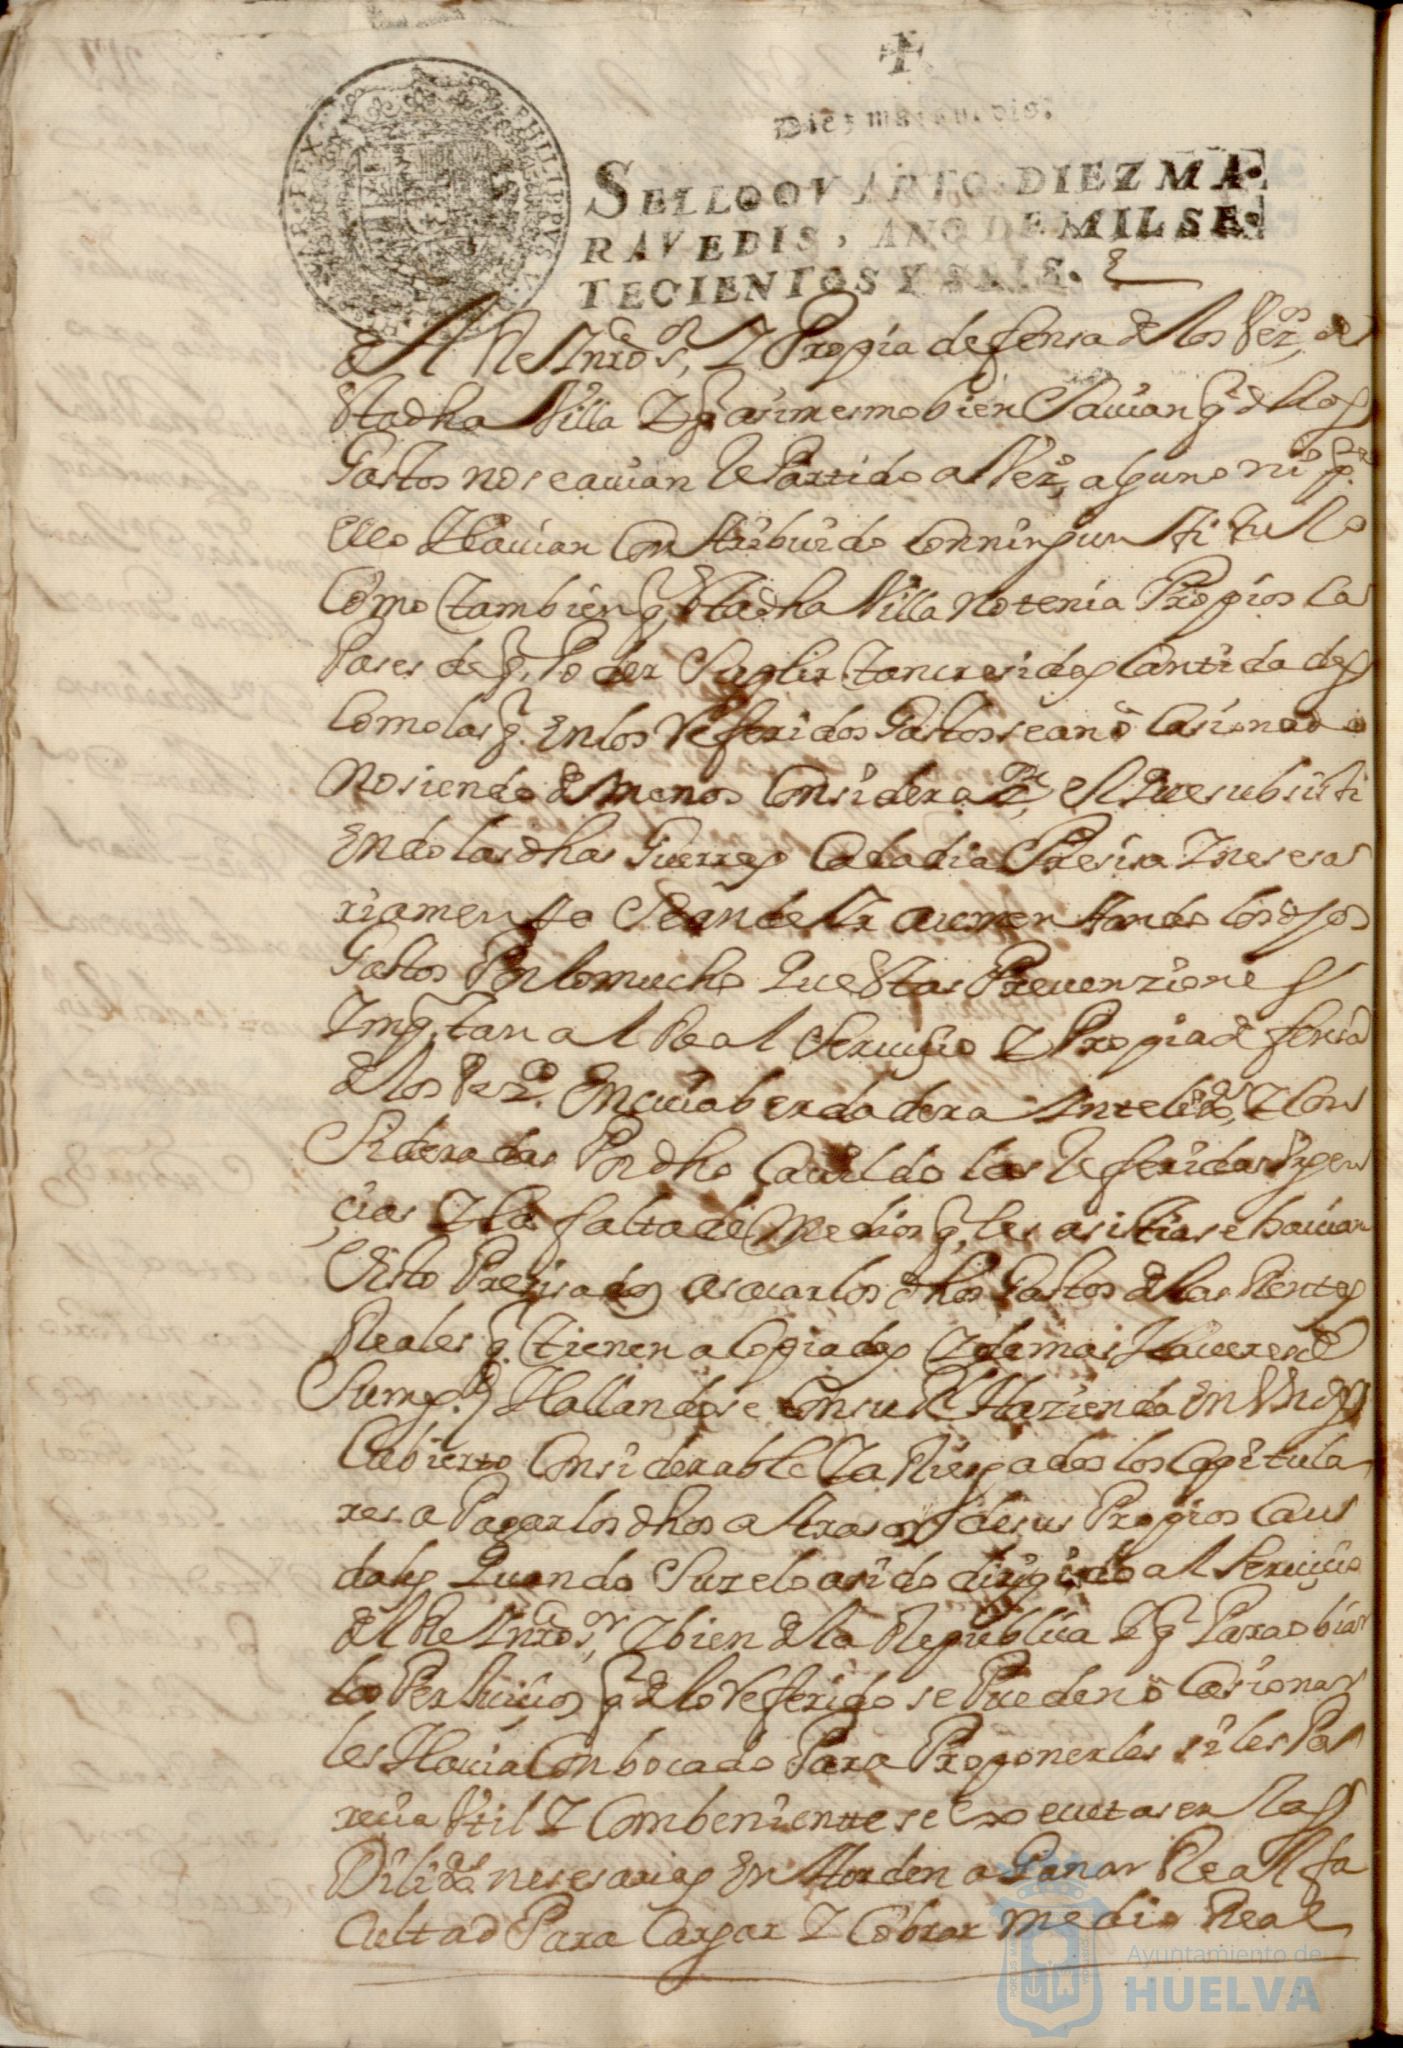 +
Diez maravedis.
SELLO QVARTO, DIEZ MA-
RAVEDIS, AÑO DE MIL SE-
TECIENTOS Y SEIS.
PHILIPPVS V.
del Rey nro sor, Y Propia defensa de los Vezos de
esta dha Villa Y q asimesmo bien Savian q dhos
Gastos no se avian Repartido a Vezo alguno ni pr
ello Havian Contribuido Con ningun titulo
Como tambien q esta dha Villa no tenia Propios Ca
Pases de q Poder Suplir tan cresidas Cantidades
Como las q. En los Referidos Gastos se an ocasionado
no siendo de menos Considerazn el que subsisti
Endo las dhas Guerras Cada dia Presisa Y neses
riamente Se an de Ir aumentando los dhos
Gastos Por lo mucho que estas Prevenziones
Ymportan al Real Servicio Y Propia defensa
de los Vezos. En cuia berdadera Inteliga, Y Con
Sideradas Por dho Cavildo las Referidas Vrgen
cias Y la falta de Medios q. les asistia se havian
Visto Presisados a sacar los dhos Gastos de las Rentas
Reales q. tienen acopiadas Y demas Haveres de
Su Magd Hallandose Con su Rl Hazienda En Vn des
Cubierto Considerable Y a Riesgados los Capitula
res a Pagar los dhos atrasos de sus Propios Cau
dales Quando Su zelo a sido dirigido al Servicio
del Rey nro sor, Y bien de la Republica Y q Para obiar
los Perjuicios q de lo Referido se Pueden ocasionar
les Havia Combocado Para Proponerles si les Pa
recia Vtil Y Combeniente se executasen las
Diligas nesesarias En Horden a Ganar Real fa
Cultad Para Cargar Y Cobrar medio Real
Ayuntamiento de
HUELVA